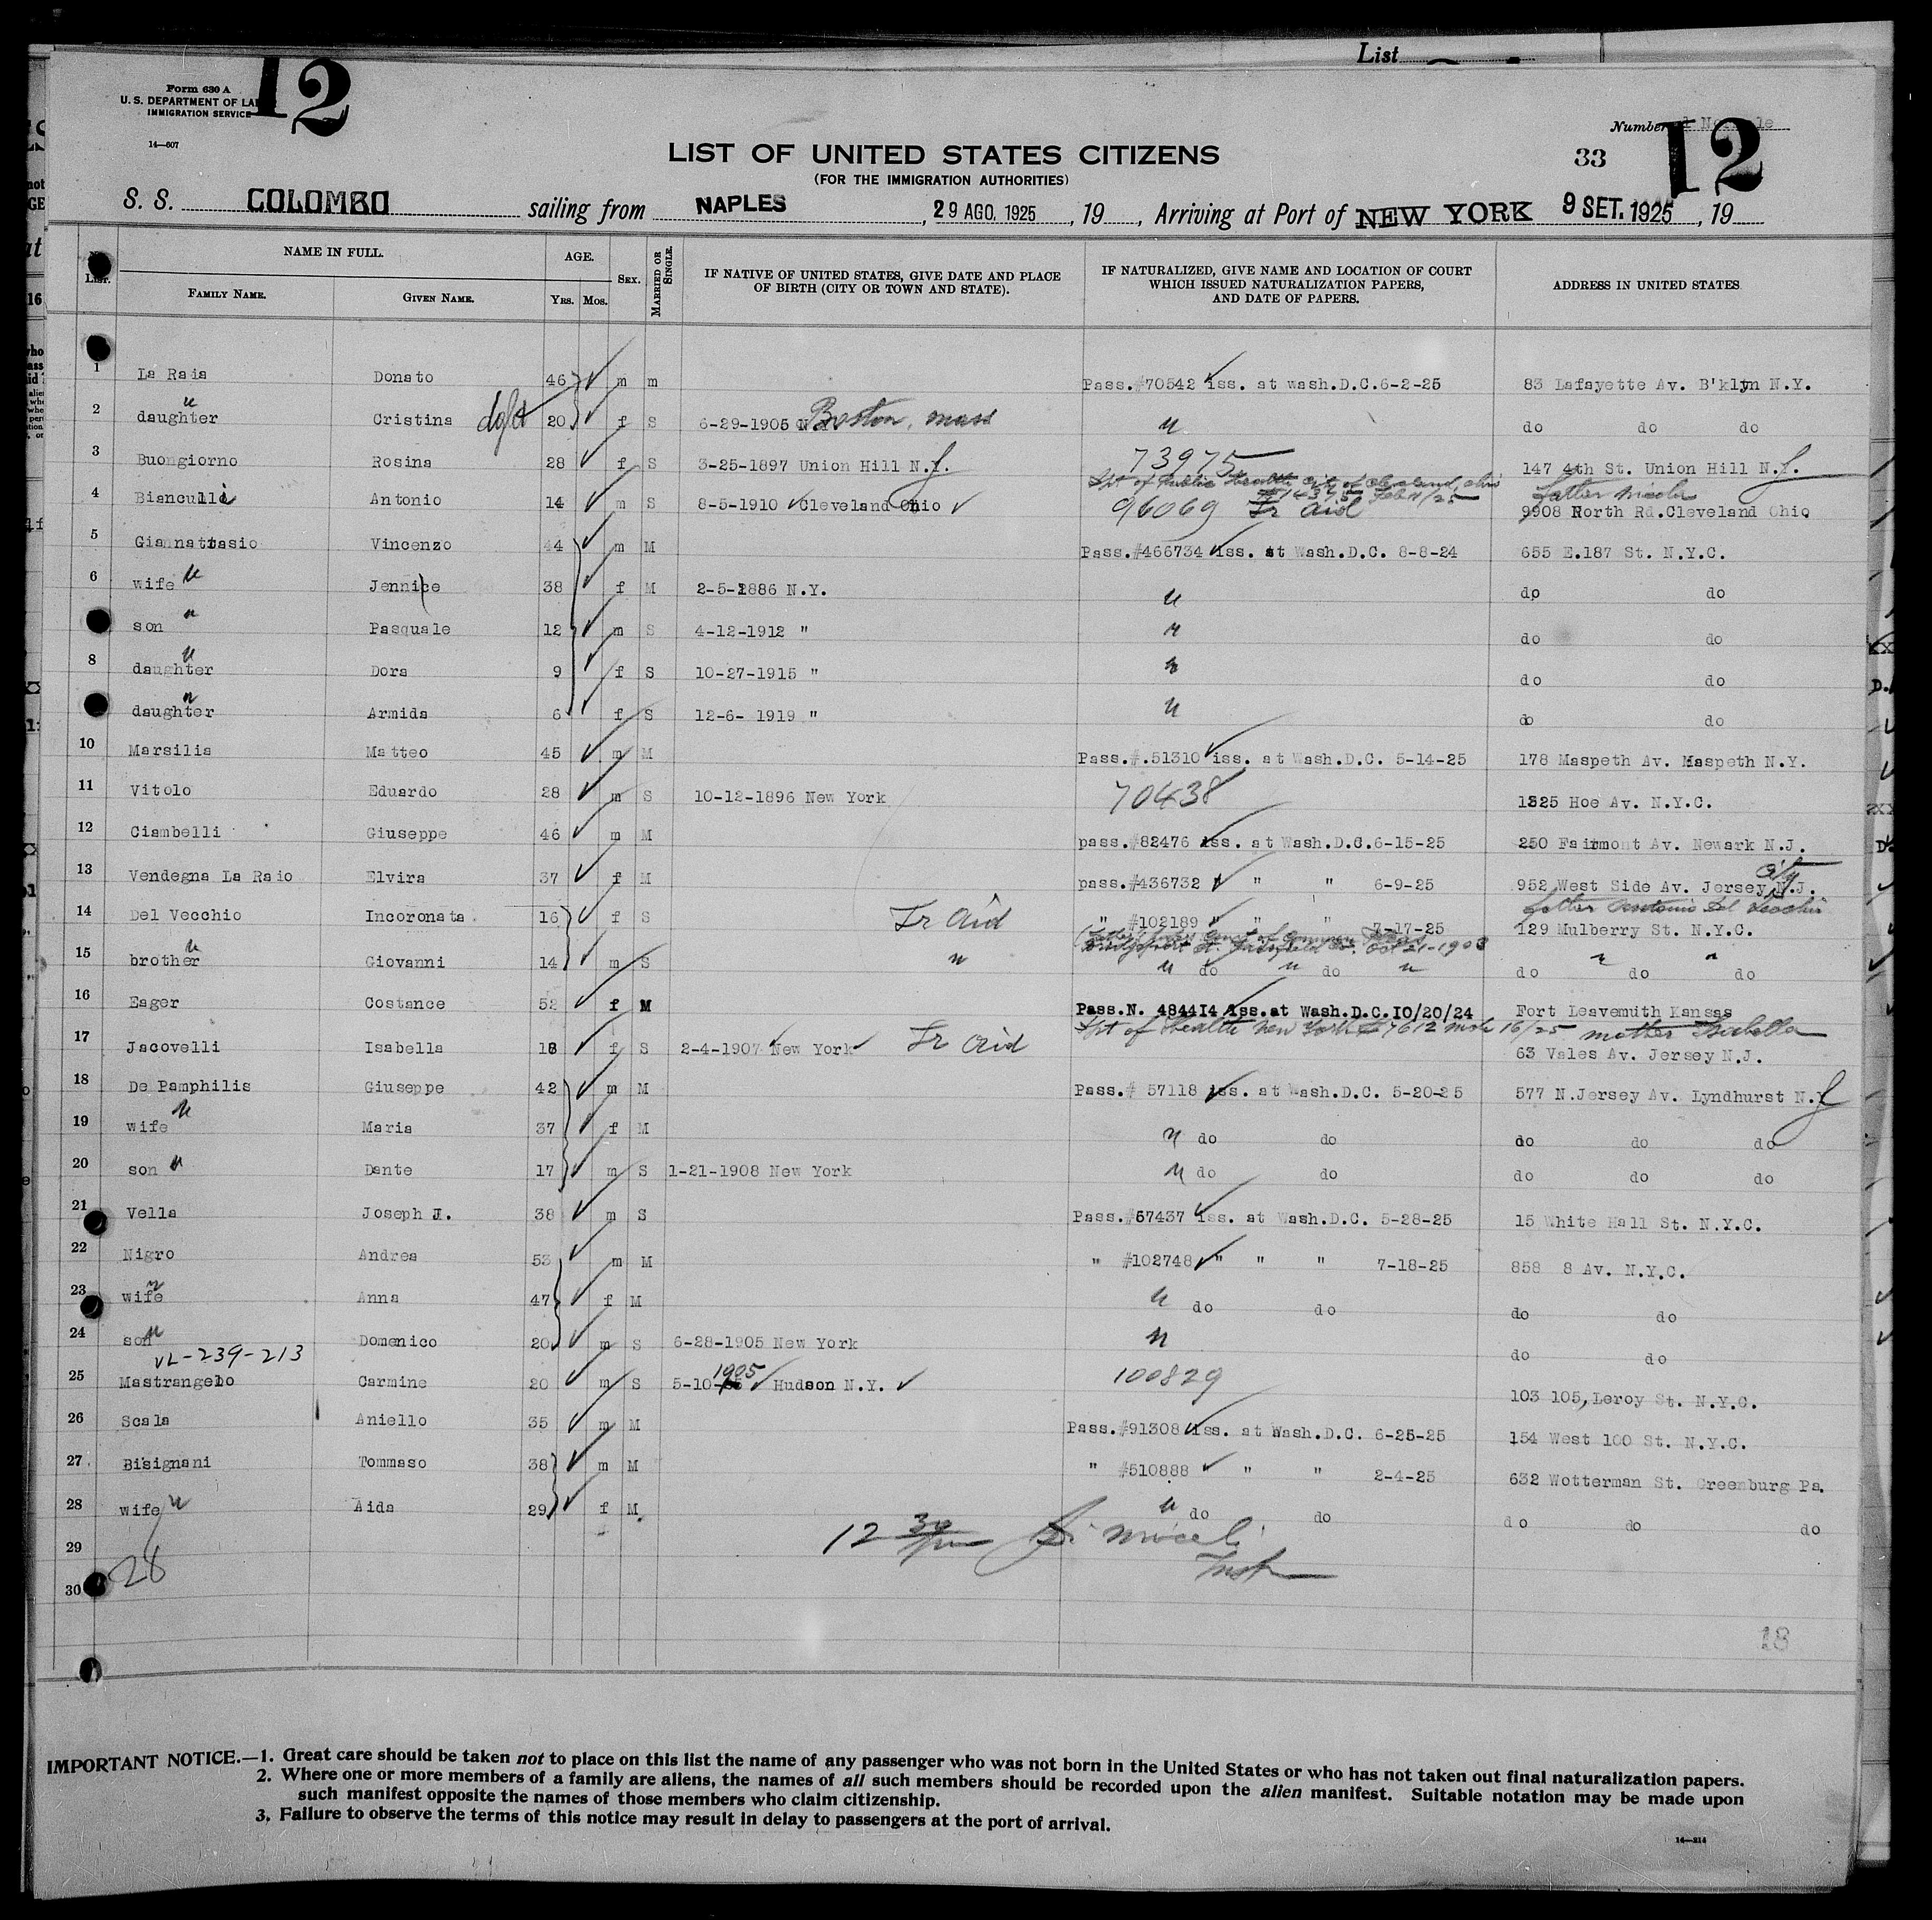 List
12
Form 630 A
U. S. DEPARTMENT OF LA
IMMIGRATION SERVICE
14—607
Number
12
33
LIST OF UNITED STATES CITIZENS
(FOR THE IMMIGRATION AUTHORITIES)
S. S. COLOMBO sailing from NAPLES, 29 AGO. 1925, 19, Arriving at Port of NEW YORK 9 SET. 1925, 19
List. NAME IN FULL. FAMILY NAME. GIVEN NAME. AGE. YRS. MOS. SEX. MARRIED OR SINGLE. IF NATIVE OF UNITED STATES, GIVE DATE AND PLACE OF BIRTH (CITY OR TOWN AND STATE). IF NATURALIZED, GIVE NAME AND LOCATION OF COURT WHICH ISSUED NATURALIZATION PAPERS, AND DATE OF PAPERS. ADDRESS IN UNITED STATES
1 La Raia Donato 46 m m Pass.#70542 iss. at wash.D.C.6-2-25 83 Lafayette Av. B'klyn N.Y.
2 daughter " Cristina 20 f S 6-29-1905 Boston, mass " do do do
3 Buongiorno Rosina 28 f S 3-25-1897 Union Hill N.J. 73975 147 4th St. Union Hill N.J.
Dpt of Public Health City of Cleveland, Ohio
Feb 11/25 father Nicola
4 Bianculli Antonio 14 m S 8-5-1910 Cleveland Ohio 96069 Ir Aid 9908 North Rd.Cleveland Ohio
5 Giannattasio Vincenzo 44 m M Pass.#466734 iss. at Wash.D.C. 8-8-24 655 E.187 St. N.Y.C.
6 wife " Jennie 38 f M 2-5-1886 N.Y. " do do
son " Pasquale 12 m S 4-12-1912 " " do do
8 daughter " Dora 9 f S 10-27-1915 " " do do
daughter " Armida 6 f S 12-6- 1919 " " do do
10 Marsilia Matteo 45 m M Pass.#.51310 iss. at Wash.D.C. 5-14-25 178 Maspeth Av. Maspeth N.Y.
11 Vitolo Eduardo 28 m S 10-12-1896 New York 70438 1325 Hoe Av. N.Y.C.
12 Ciambelli Giuseppe 46 m M pass.#82476 iss. at Wash.D.C.6-15-25 250 Fairmont Av. Newark N.J.
13 Vendegna La Raio Elvira 37 f M pass.#436732 " " 6-9-25 952 West Side Av. Jersey City N.J.
father Antonio Del Vecchio
14 Del Vecchio Incoronata 16 f S Ir Aid " #102189 " " " 7-17-25 129 Mulberry St. N.Y.C.
Court of Common Pleas
Bridgeport Ct. Fairfield Co. Oct 21-1903
15 brother " Giovanni 14 m S " " do " do " do " do " do
16 Eager Costance 52 f M Pass.N. 484414 iss.at Wash.D.C.10/20/24 Fort Leavemuth Kansas
Dpt of Health New York 16/25 mother Isabella
17 Jacovelli Isabella 18 f S 2-4-1907 New York Ir Aid 63 Vales Av. Jersey N.J.
18 De Pamphilis Giuseppe 42 m M Pass.# 57118 iss. at Wash.D.C. 5-20-25 577 N.Jersey Av. Lyndhurst N.J
19 wife " Maria 37 f M " do do do do do
20 son " Dante 17 m S 1-21-1908 New York " do do do do do
21 Vella Joseph J. 38 m S Pass.#67437 iss. at Wash.D.C. 5-28-25 15 White Hall St. N.Y.C.
22 Nigro Andrea 53 m M " #102748 " " " 7-18-25 858 8 Av. N.Y.C.
23 wife " Anna 47 f M " do do do do
24 son " Domenico 20 m S 6-28-1905 New York " do do
VL-239-213
25 Mastrangelo Carmine 20 m S 5-10-1905 Hudson N.Y. 100829 103 105, Leroy St. N.Y.C.
26 Scala Aniello 35 m M Pass.#91308 iss. at Wash.D.C. 6-25-25 154 West 100 St. N.Y.C.
27 Bisignani Tommaso 38 m M " #510888 " " 2-4-25 632 Wotterman St. Greenburg Pa.
28 wife " Aida 29 f M. " do do do do do
29 12 30
30 28 Insp
18
IMPORTANT NOTICE.—1. Great care should be taken not to place on this list the name of any passenger who was not born in the United States or who has not taken out final naturalization papers.
2. Where one or more members of a family are aliens, the names of all such members should be recorded upon the alien manifest. Suitable notation may be made upon
such manifest opposite the names of those members who claim citizenship.
3. Failure to observe the terms of this notice may result in delay to passengers at the port of arrival.
14—214